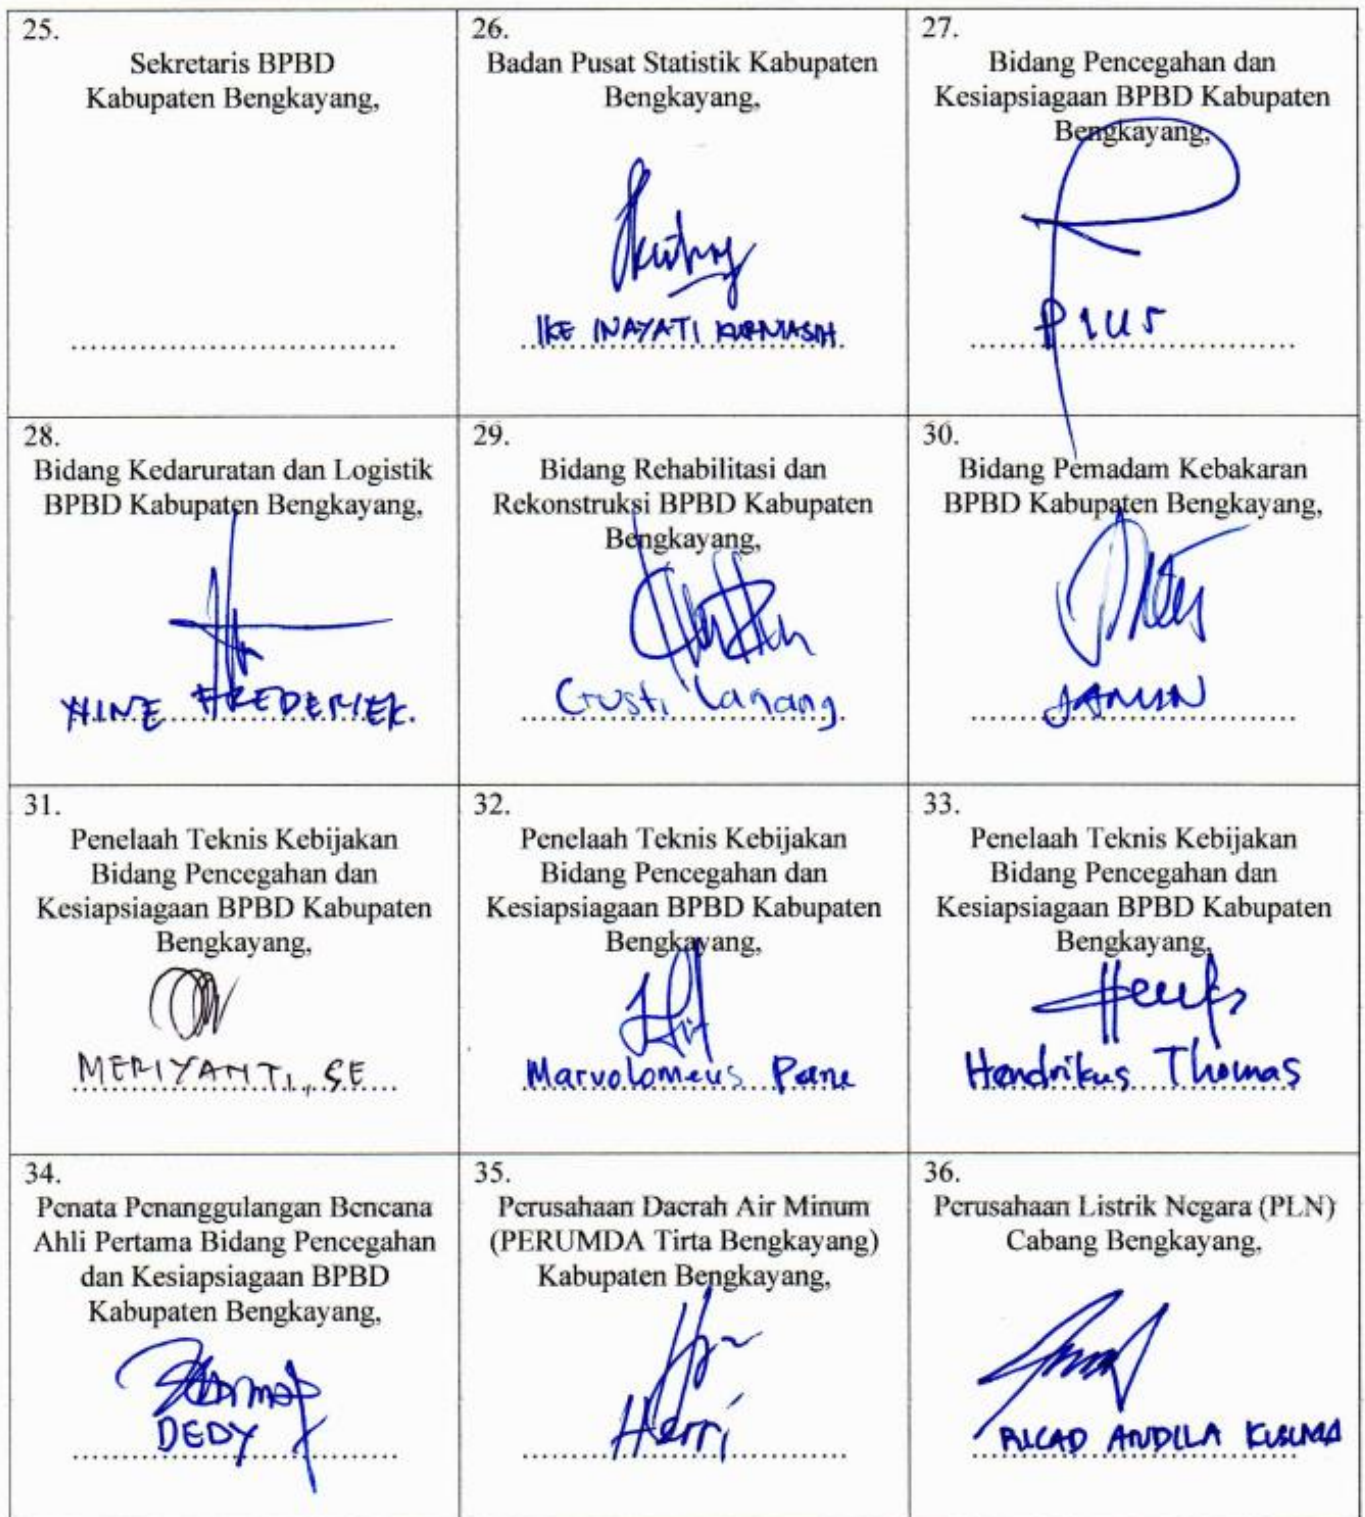 25.
Sekretaris BPBD
Kabupaten Bengkayang,
26.
Badan Pusat Statistik Kabupaten
Bengkayang,
IKE INAYATI KURNIASIH
27.
Bidang Pencegahan dan
Kesiapsiagaan BPBD Kabupaten
Bengkayang,
PIUS
28.
Bidang Kedaruratan dan Logistik
BPBD Kabupaten Bengkayang,
FREDERIEK.
29.
Bidang Rehabilitasi dan
Rekonstruksi BPBD Kabupaten
Bengkayang,
Gusti Lanang
30.
Bidang Pemadam Kebakaran
BPBD Kabupaten Bengkayang,
31.
Penelaah Teknis Kebijakan
Bidang Pencegahan dan
Kesiapsiagaan BPBD Kabupaten
Bengkayang,
MERIYANTI, SE
32.
Penelaah Teknis Kebijakan
Bidang Pencegahan dan
Kesiapsiagaan BPBD Kabupaten
Bengkayang,
Marvolomeus Pane
33.
Penelaah Teknis Kebijakan
Bidang Pencegahan dan
Kesiapsiagaan BPBD Kabupaten
Bengkayang,
Hendrikus Thomas
34.
Penata Penanggulangan Bencana
Ahli Pertama Bidang Pencegahan
dan Kesiapsiagaan BPBD
Kabupaten Bengkayang,
DEDY
35.
Perusahaan Daerah Air Minum
(PERUMDA Tirta Bengkayang)
Kabupaten Bengkayang,
Herri
36.
Perusahaan Listrik Negara (PLN)
Cabang Bengkayang,
RICAD ANDILA KUSUMA